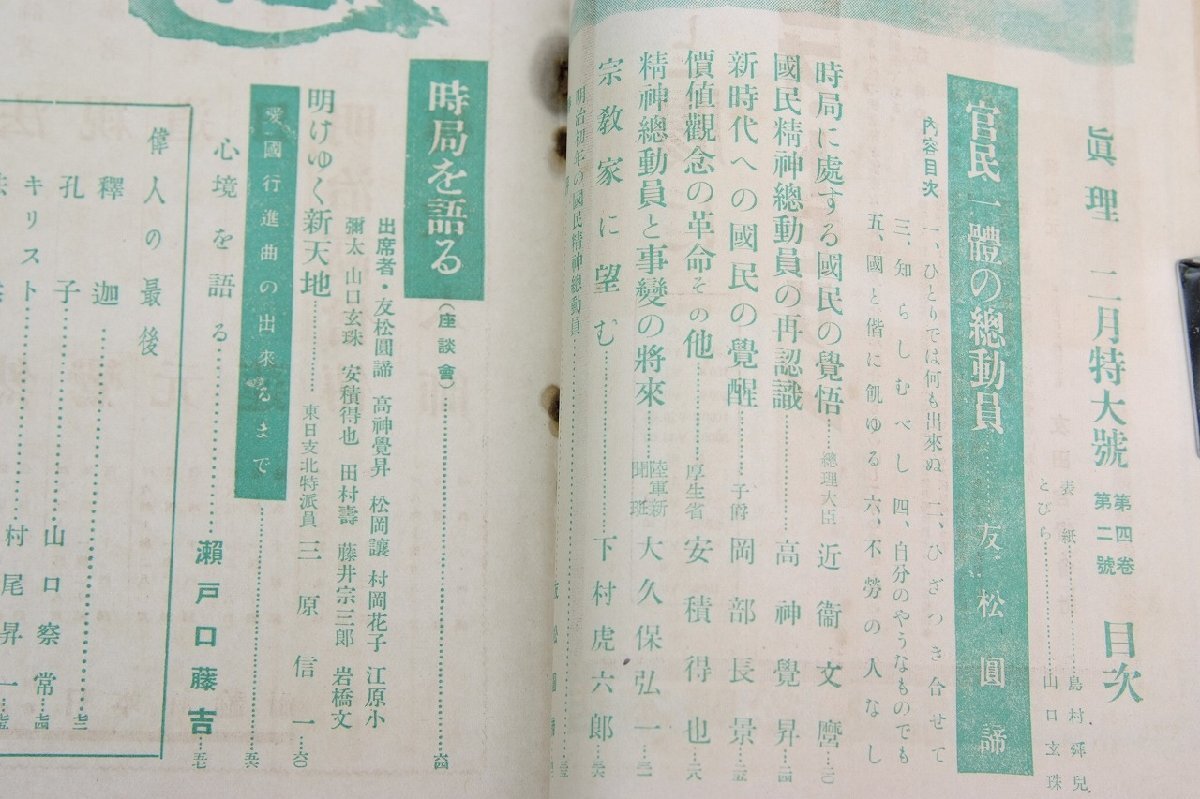 眞理 二月特大號 第四卷第二號 目次
表紙……島村舜兒
とびら……山口玄珠
官民一體の總動員……友松圓諦
內容目次
一、ひとりでは何も出來ぬ 二、ひざつき合せて
三、知らしむべし 四、自分のやうなものでも
五、國と偕に飢ゆる 六、不勞の人なし
時局に處する國民の覺悟……總理大臣 近衞文麿
國民精神總動員の再認識……高神覺昇
新時代への國民の覺醒……子爵 岡部長景
價値觀念の革命その他……厚生省 安積得也
精神總動員と事變の將來……陸軍新聞班 大久保弘一
宗教家に望む……下村虎六郎
明治初年の國民精神總動員
時局を語る(座談會)……六四
出席者・友松圓諦 高神覺昇 松岡讓 村岡花子 江原小
彌太 山口玄珠 安積得也 田村壽 藤井宗三郎 岩橋文
明けゆく新天地……東日支北特派員 三原信一…六〇
愛國行進曲の出來るまで……五六
心境を語る……瀨戸口藤吉…五七
偉人の最後
釋迦……
孔子……山口察常
キリスト……村尾昇一